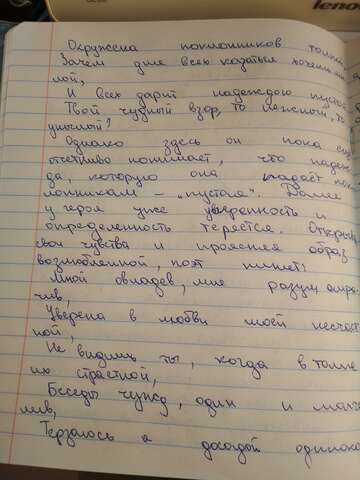 lenovo
Окружена поклонников толпой,
Зачем для всех казаться хочешь ми
лой,
И всех дарит надеждою пустой
Твой чудный взор, то нежный, то
унылой?
Однако здесь он пока ещё
отчетливо понимает, что надеж
да, которую она подаёт пок
лонникам – „пустая". Далее
у героя уже уверенность и
определенность теряется. Открывая
свои чувства и проясняя образ
возлюбленной, поэт пишет:
Мной овладев, мне разум омра
чив,
Уверена в любви моей несчаст
ной,
Не видишь ты, когда в толпе
их страстной,
Беседы чужд, один и молча
лив,
Терзаюсь я досадой одинокой